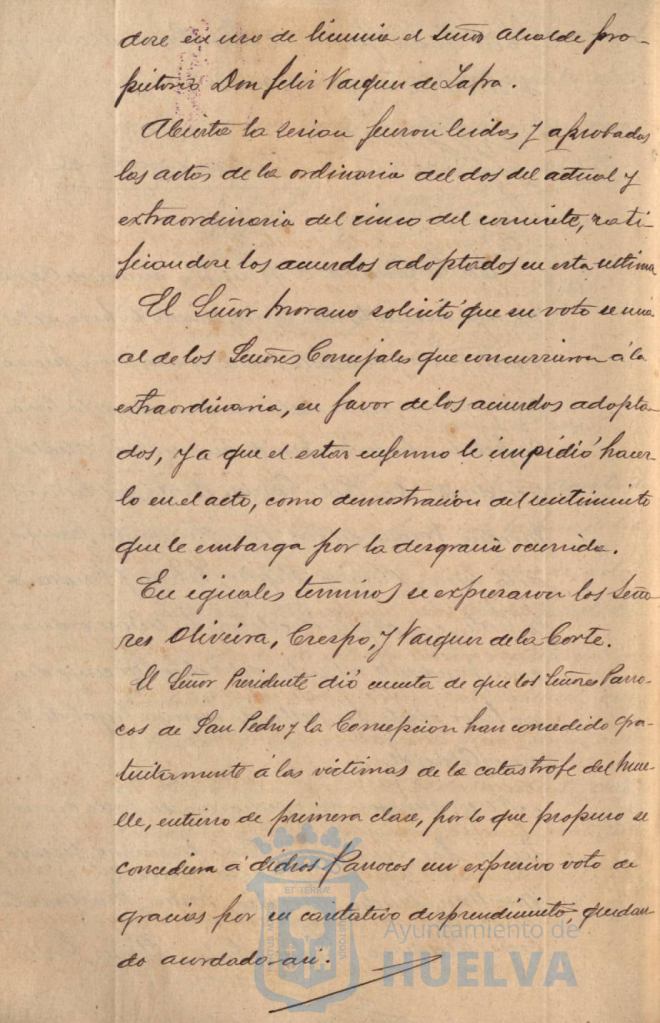 dose en uso de licencia el Señor Alcalde pro-
pietario Don Felix Vazquez de Zafra.
Abierta la sesion fueron leidas y aprobadas
las actas de la ordinaria del dos del actual y
extraordinaria del cinco del corriente, rati-
ficandose los acuerdos adoptados en esta ultima
El Señor Morano solicitó que su voto se una
al de los Señores Concejales que concurrieron á la
extraordinaria, en favor de los acuerdos adopta-
dos, ya que el estar enfermo le impidió hacer-
lo en el acto, como demostracion del sentimiento
que le embarga por la desgracia ocurrida.
En iguales terminos se expresaron los Seño-
res Oliveira, Crespo, y Vazquez de la Corte.
El Señor Presidente dió cuenta de que los Señores Parro-
cos de San Pedro y la Concepcion han concedido gra-
tuitamente á las victimas de la catastrofe del mue-
lle, entierro de primera clase, por lo que propuso se
concediera á dichos Parrocos un expresivo voto de
gracias por su caritativo desprendimiento, quedan-
do acordado asi.
Ayuntamiento de
HUELVA